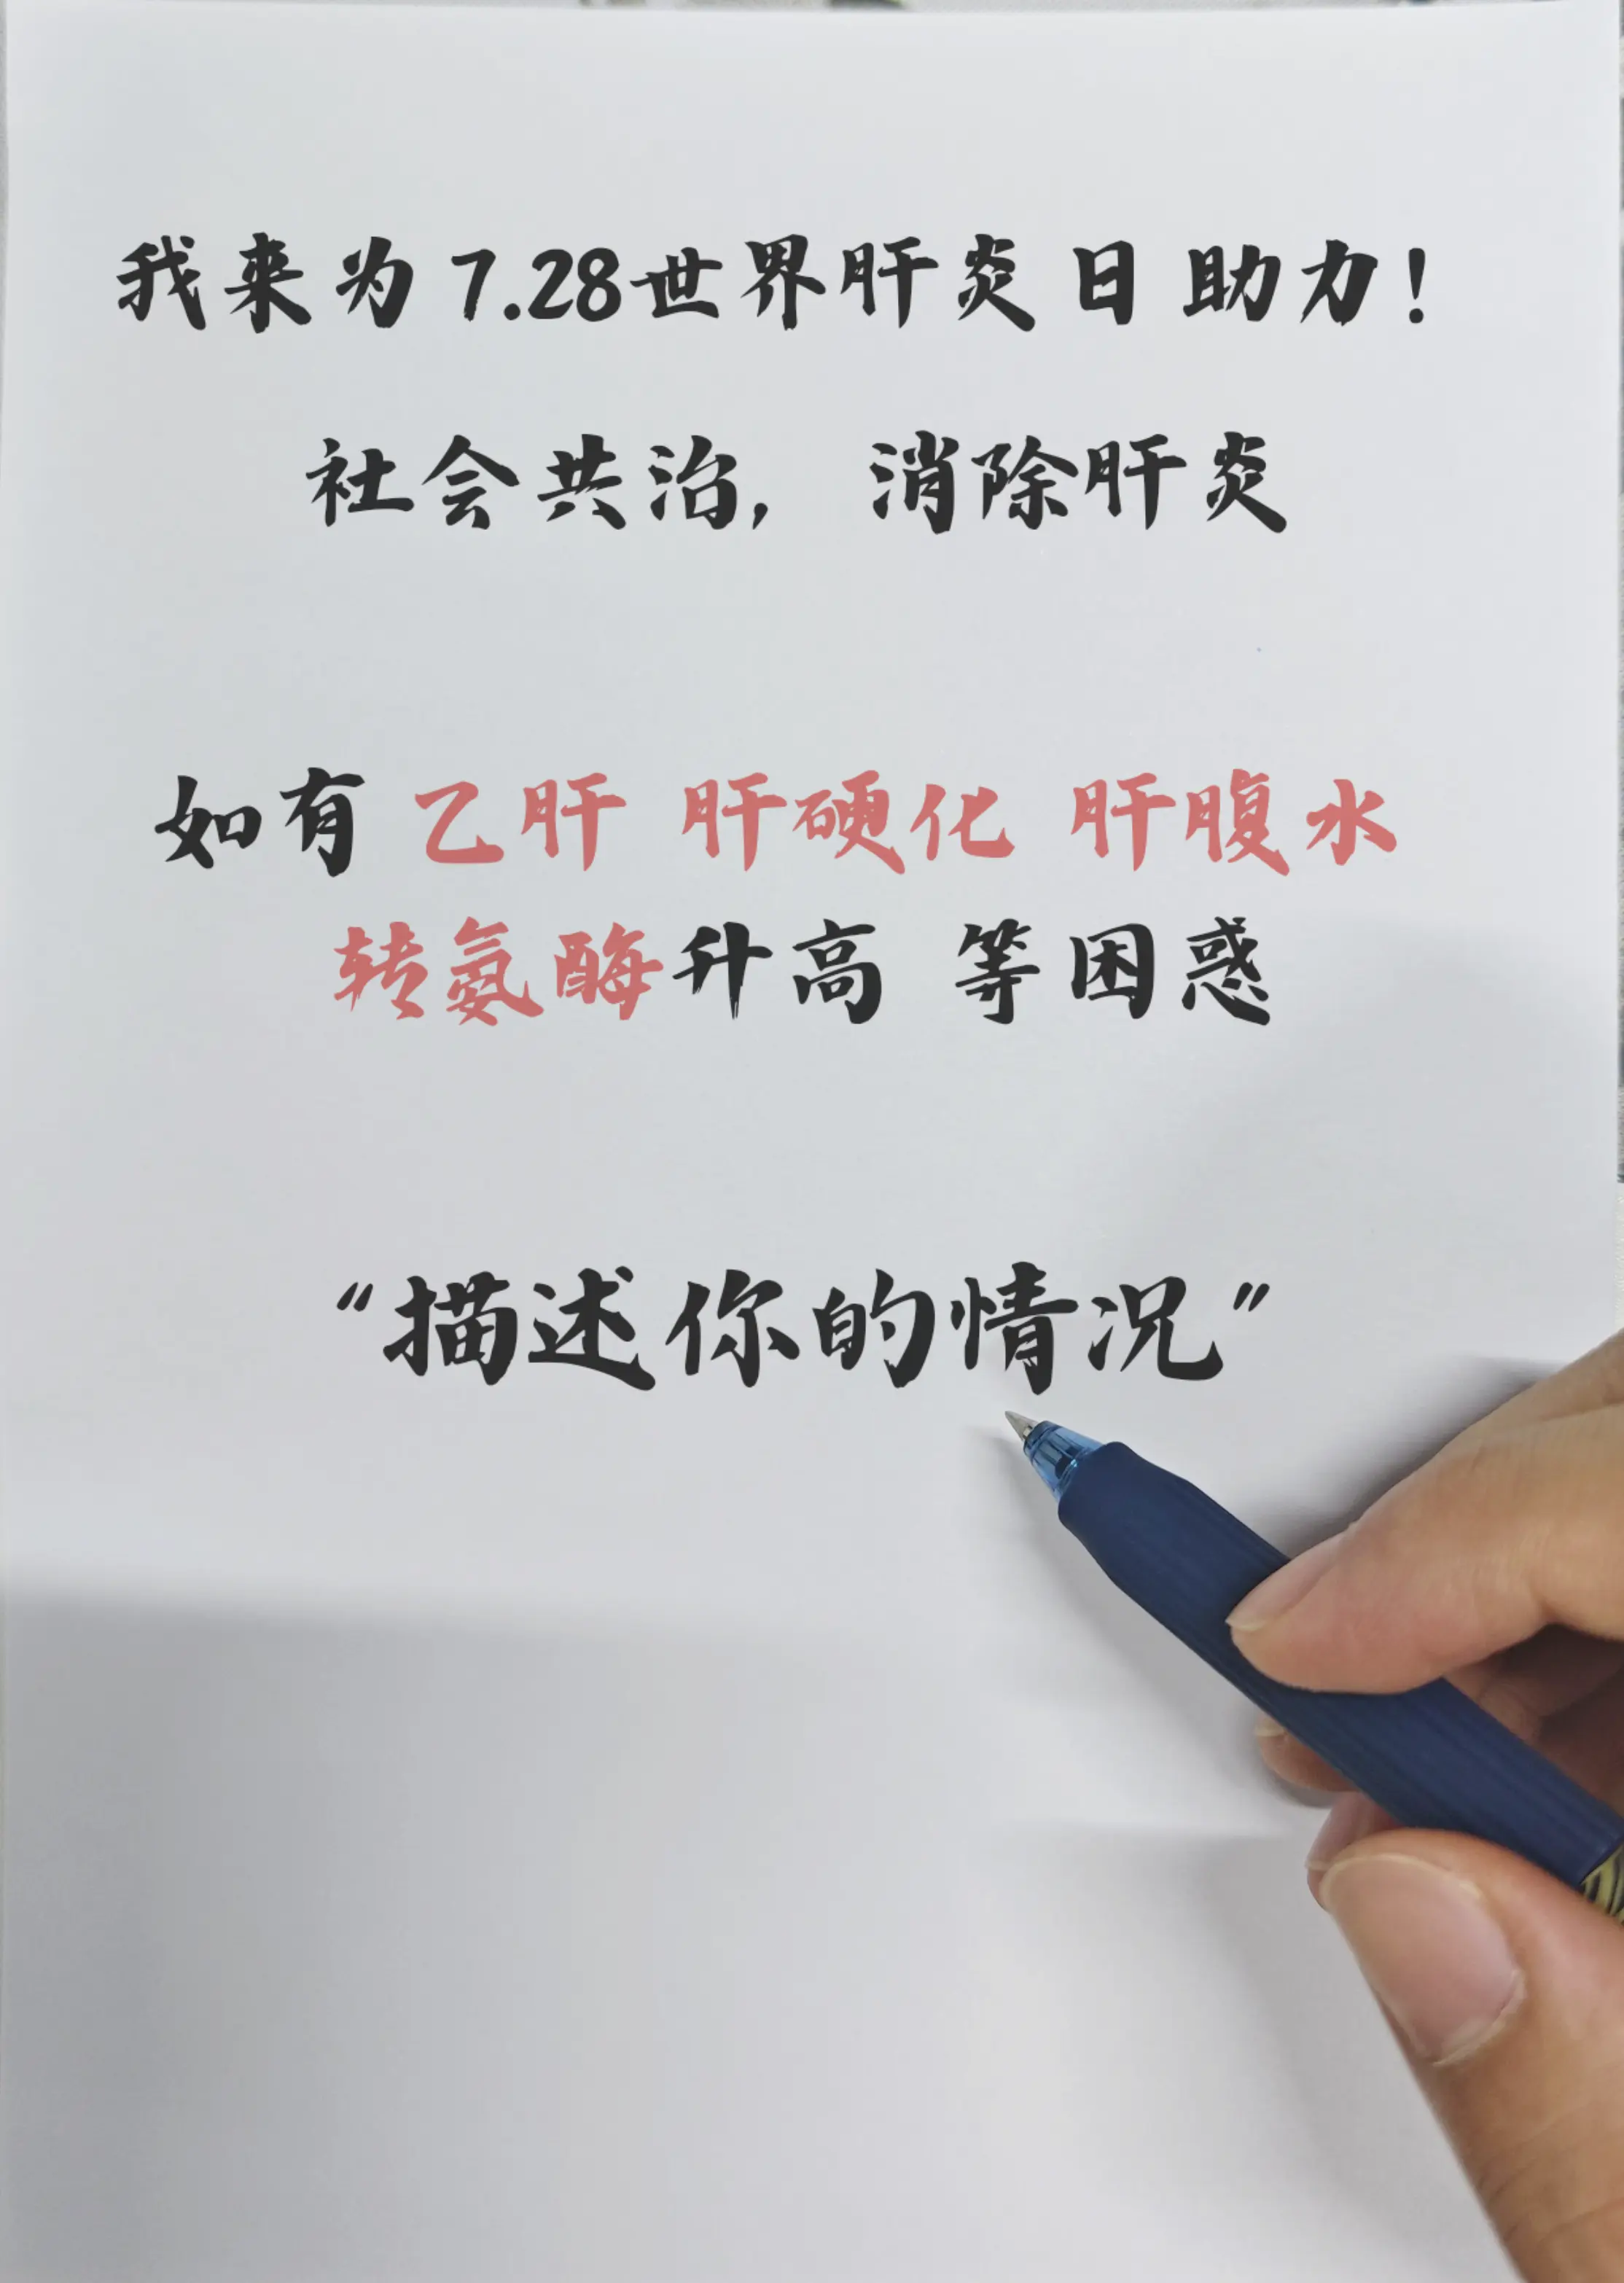 我来为7.28世界肝炎日助力！
社会共治，消除肝炎
如有 乙肝 肝硬化 肝腹水
转氨酶升高 等困惑
“描述你的情况”